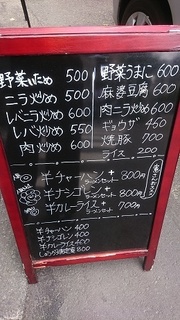 野菜いため 500
ニラ炒め 500
レバニラ炒め 600
レバ炒め 550
肉炒め 600
野菜うまに 600
麻婆豆腐 600
肉ニラ炒め 600
ギョウザ 450
焼豚 700
ライス 200
半チャーハン+ラーメンセット 800円
半ナシゴレン+ラーメンセット 800円
半カレーライス+ラーメンセット 700円
半チャーハン 400
半ナシゴレン 400
半カレーライス 400